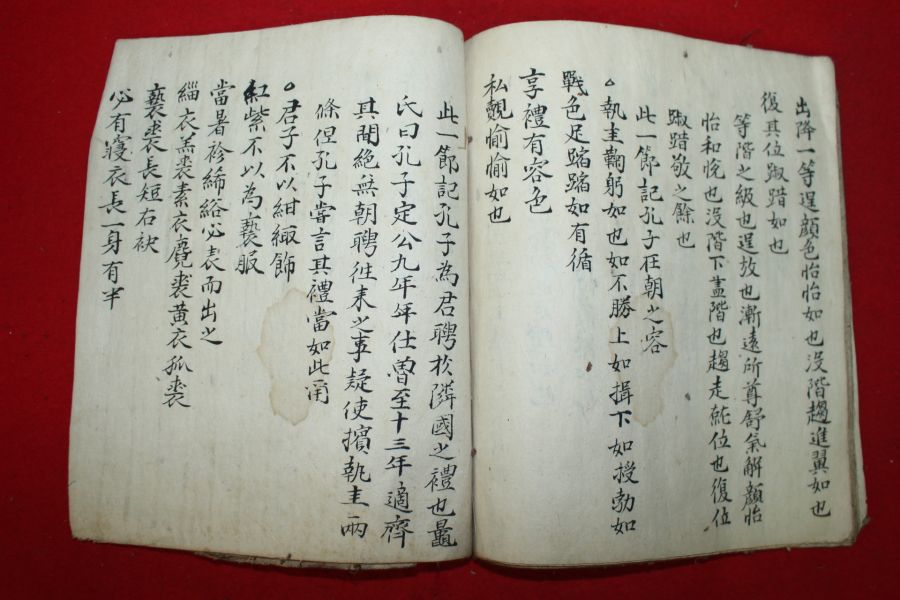 出降一等逞顔色怡怡如也沒階趨進翼如也
復其位踧踖如也
等階之級也逞放也漸遠所尊舒氣解顔怡
怡和悅也沒階下盡階也趨走就位也復位
踧踖敬之餘也
此一節記孔子在朝之容
○執圭鞠躬如也如不勝上如揖下如授勃如
戰色足蹜蹜如有循
享禮有容色
私覿愉愉如也
此一節記孔子為君聘於隣國之禮也鼂
氏曰孔子定公九年年仕魯至十三年適齊
其間絶無朝聘徃来之事疑使擯執圭兩
條但孔子嘗言其禮當如此甭
○君子不以紺緅飾
紅紫不以為褻服
當暑袗絺綌必表而出之
緇衣羔裘素衣麑裘黃衣狐裘
褻裘長短右袂
必有寢衣長一身有半